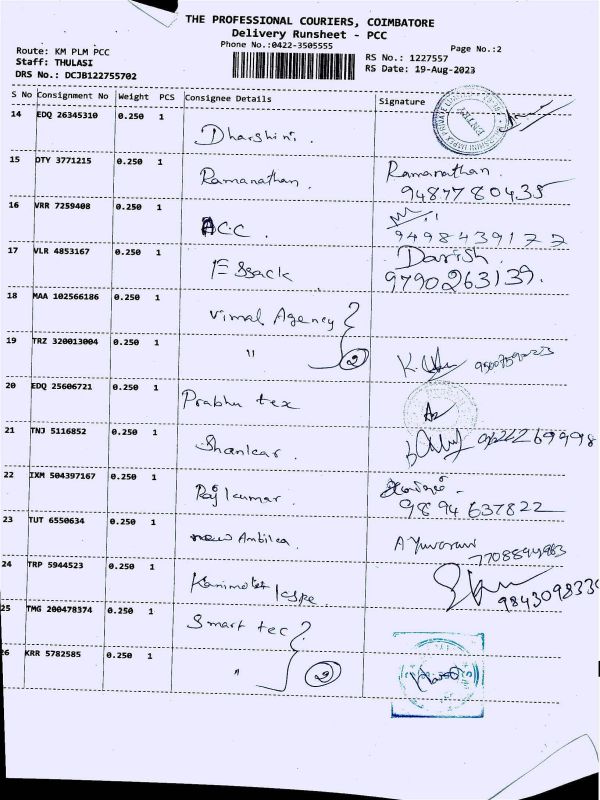 THE PROFESSIONAL COURIERS, COIMBATORE
Delivery Runsheet - PCC
Phone No.:0422-3505555
Page No.:2
Route: KM PLM PCC
Staff: THULASI
DRS No.: DCJB122755702
RS No.: 1227557
RS Date: 19-Aug-2023
S No Consignment No Weight PCS Consignee Details Signature
14 EDQ 26345310 0.250 1 Dharshini.
15 DTY 3771215 0.250 1 Ramanathan. Ramanathan.
9487780435
16 VRR 7259408 0.250 1 ACC.
9498439177
17 VLR 4853167 0.250 1 Essack Darish.
9790263139.
18 MAA 102566186 0.250 1 Vimal Agency
19 TRZ 320013004 0.250 1 " 2
20 EDQ 25606721 0.250 1 Prabhu tex
21 TNJ 5116852 0.250 1 Shankar.
22 IXM 504397167 0.250 1 Rajkumar.
9894637822
23 TUT 6550634 0.250 1 new Ambika. A Yuvaraw
7708894983
24 TRP 5944523 0.250 1
25 TMG 200478374 0.250 1 Smart tec
26 KRR 5782585 0.250 1 " 2